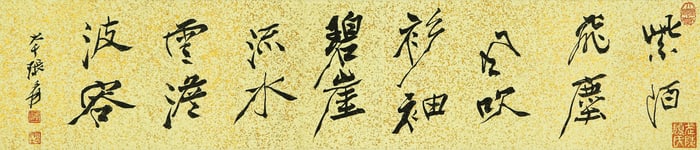 紫陌
飛塵
風吹
衫袖
碧崖
流水
雲澹
波容
大千張爰